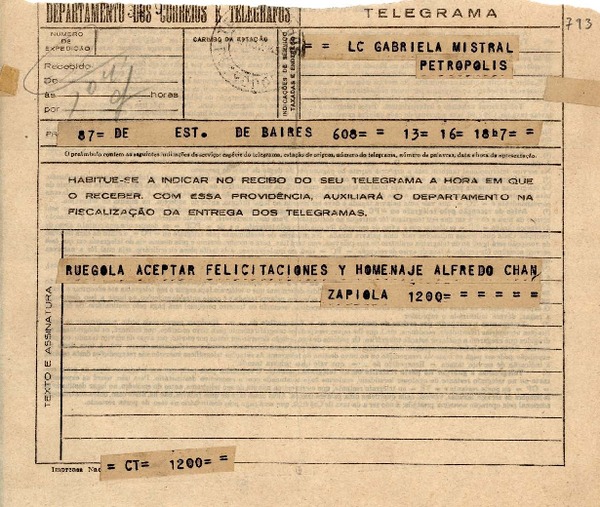 DEPARTAMENTO DOS CORREIOS E TELEGRAFOS
TELEGRAMA
793
NÚMERO
DE
EXPEDIÇÃO
CARIMBO DA ESTAÇÃO
INDICAÇÕES DE SERVIÇO
TAXADAS E ENDEREÇO
= = LC GABRIELA MISTRAL
PETROPOLIS
Recebido
De
ás horas
por
87= DE EST. DE BAIRES 608= = 13= 16= 18h7= =
O preâmbulo contem as seguintes indicações de serviço: espécie do telegrama, estação de origem, número do telegrama, número de palavras, data e hora da apresentação.
HABITUE-SE A INDICAR NO RECIBO DO SEU TELEGRAMA A HORA EM QUE
O RECEBER. COM ESSA PROVIDÊNCIA, AUXILIARÁ O DEPARTAMENTO NA
FISCALIZAÇÃO DA ENTREGA DOS TELEGRAMAS.
TEXTO E ASSINATURA
RUEGOLA ACEPTAR FELICITACIONES Y HOMENAJE ALFREDO CHAN
ZAPIOLA 1200= = = = = =
Imprensa Nac
= CT= 1200= =